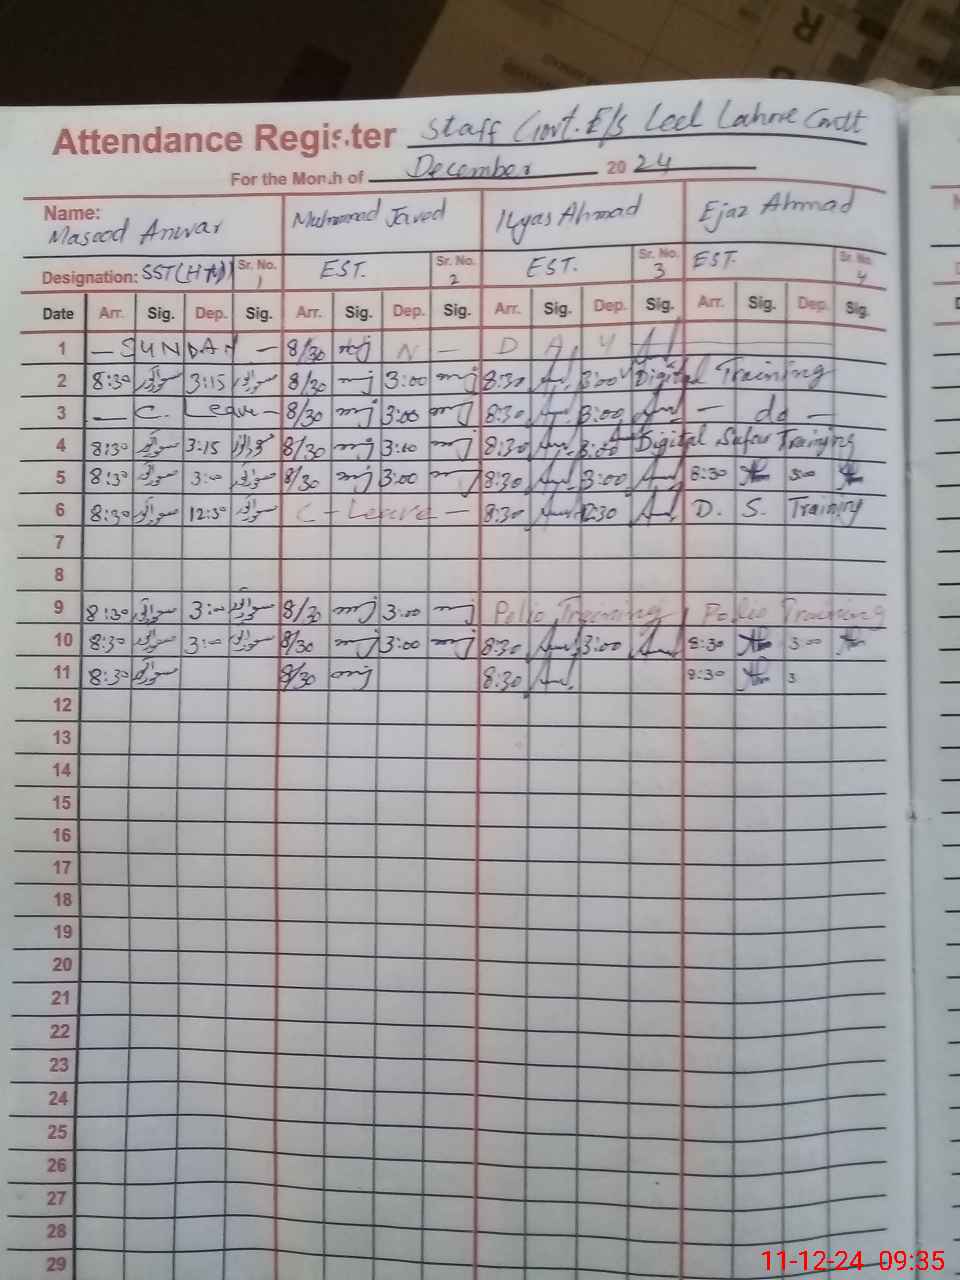 Attendance Register Staff Govt. E/S Leel Lahore Cantt
For the Month of December 20 24
Name: Masood Anwar Muhammad Javed Ilyas Ahmad Ejaz Ahmad
Designation: SST(HM) Sr. No. 1 EST. Sr. No. 2 EST. Sr. No. 3 EST. Sr. No. 4
Date Arr. Sig. Dep. Sig. Arr. Sig. Dep. Sig. Arr. Sig. Dep. Sig. Arr. Sig. Dep. Sig.
1 — SUNDAY — 8/30 N — D A Y
2 8:30 3:15 8/30 3:00 8:30 3:00 Digital Training
3 — C. Leave — 8/30 3:00 8:30 3:00 — do —
4 8:30 3:15 8/30 3:00 8:30 3:00 Digital Training
5 8:30 3:00 8/30 3:00 8:30 3:00 8:30 3:00
6 8:30 12:30 C - Leave — 8:30 12:30 D. S. Training
7
8
9 8:30 3:00 8/30 3:00 Polio Training Polio Training
10 8:30 3:00 8/30 3:00 8:30 3:00 8:30 3:00
11 8:30 8/30 8:30 8:30 3
12
13
14
15
16
17
18
19
20
21
22
23
24
25
26
27
28
29
11-12-24 09:35